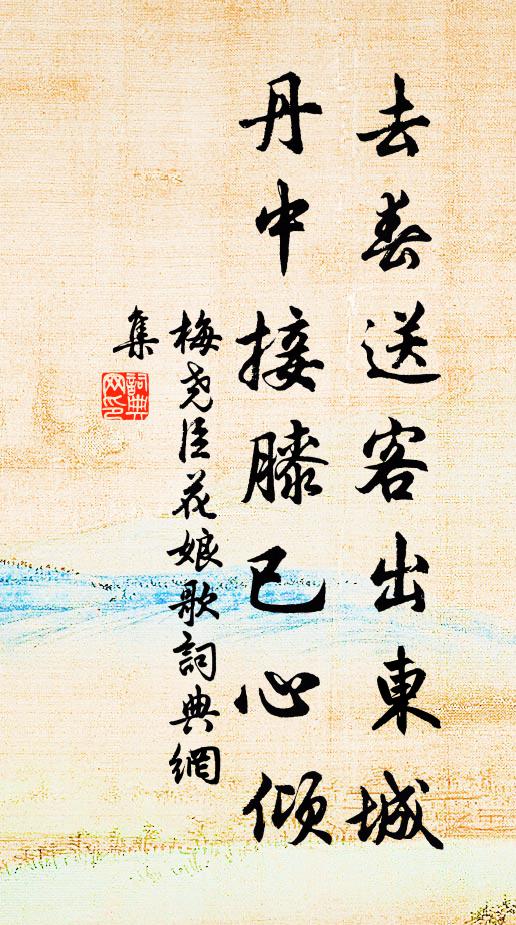 去春送客出東城
丹中接膝已心傾
梅堯臣花娘歌詞典網
集
詞典
网印